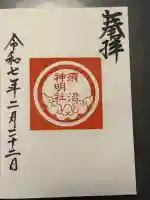 奉拝
須沼
神明社
令和七年二月二十二日